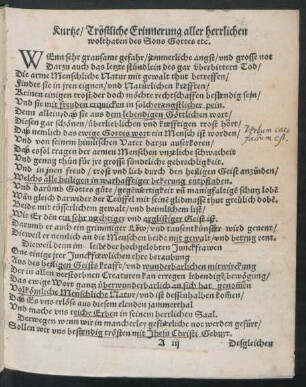 Kurtze / Tröstliche Erinnerung aller herrlichen
wolthaten des Sons Gottes etc.
WEnn sehr grausame gefahr / jämmerliche angst / und grosse not
Darzu auch das letzte stündlein des gar überbittern Tod /
Die arme Menschliche Natur mit gewalt thut betreffen /
Findet sie in jren eignen / und Natürlichen Krefften /
Keinen einigen trost / der doch möchte rechtschaffen bestendig sein /
Und sie mit freuden erquicken in solcher angstlicher pein.
Denn allein / das sie aus dem lebendigen Göttlichen wort /
Diesen gar schönen / überlieblichen und krefftigen trost hört /
Das nemlich das ewige Gottes wort ein Mensch ist worden /
Und von seinem himlischen Vater darzu auserkorn /
Das es sol tragen der armen Menschen unzliche schwacheit
Und genug thun für jre grosse sündliche gebrechligkeit.
Und in jnen freud / trost und lieb durch den heiligen Geist anzünden /
Welchs alle heiligen in warhafftiger bekerung entpfinden.
Und darümb Gottes güte / gegenwertigkeit uñ manigfaltigk schutz lobẽ
Wan gleich darwider der Teuffel mit seine gliedmasse thut grewlich tobẽ.
Beide mit rüsserlichem gewalt / und heimlichem list /
Wie Er dẽn ein sehr mechtiger und arglistiger Geist ist.
Darumb er auch ein grimmiger Löw / und tausentkünstler wird genent /
Dieweil er nemlich an die Menschen beide mit gewalt / und betrug rent.
Dieweil denn im leibe der hochgelobten Junckfrawen
One einige jrer Junckfrewlichen ehre beraubung
Aus des heiligen Geists krafft / und wunderbarlichen mitwirckung
Der in allen verstorbnen Creaturen kan erregen lebendige bewegung /
Das ewige Wort gantz überwunderbarlich an sich hat genomen
Volkömliche Menschliche Natur / und ist deshalben komen /
Das Es uns erlöse aus diesem elenden jammerthal
Und mache uns reiche Erben in seinem herrlichen Saal.
Derwegen wenn wir in mancherley geferliche not werden gefürt /
Sollen wir uns bestendig trösten mit Jhesu Christi Geburt.
A iij
Desgleichen
Verbum caro
factum est.